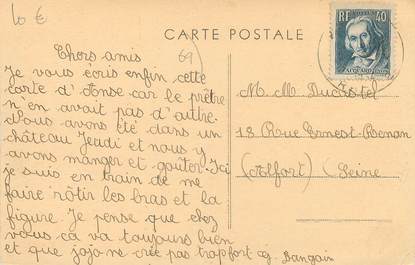 10 €
CARTE POSTALE
RF 40
JACQUARD
69)
Chers amis
Je vous ecris enfin cette
carte d'Anse car le prêtre
n'en avait pas d'autre.
Nous avons été dans un
château Jeudi et nous y
avons mánger et goûter. Ici
je suis en train de me
faire rôtir les bras et la
figure. Je pense que chez
vous ça va toujours bien
et que jojo ne crie pas trop fort
M. M. Ducastel
18 Rue Ernest-Renan
(Alfort) Seine